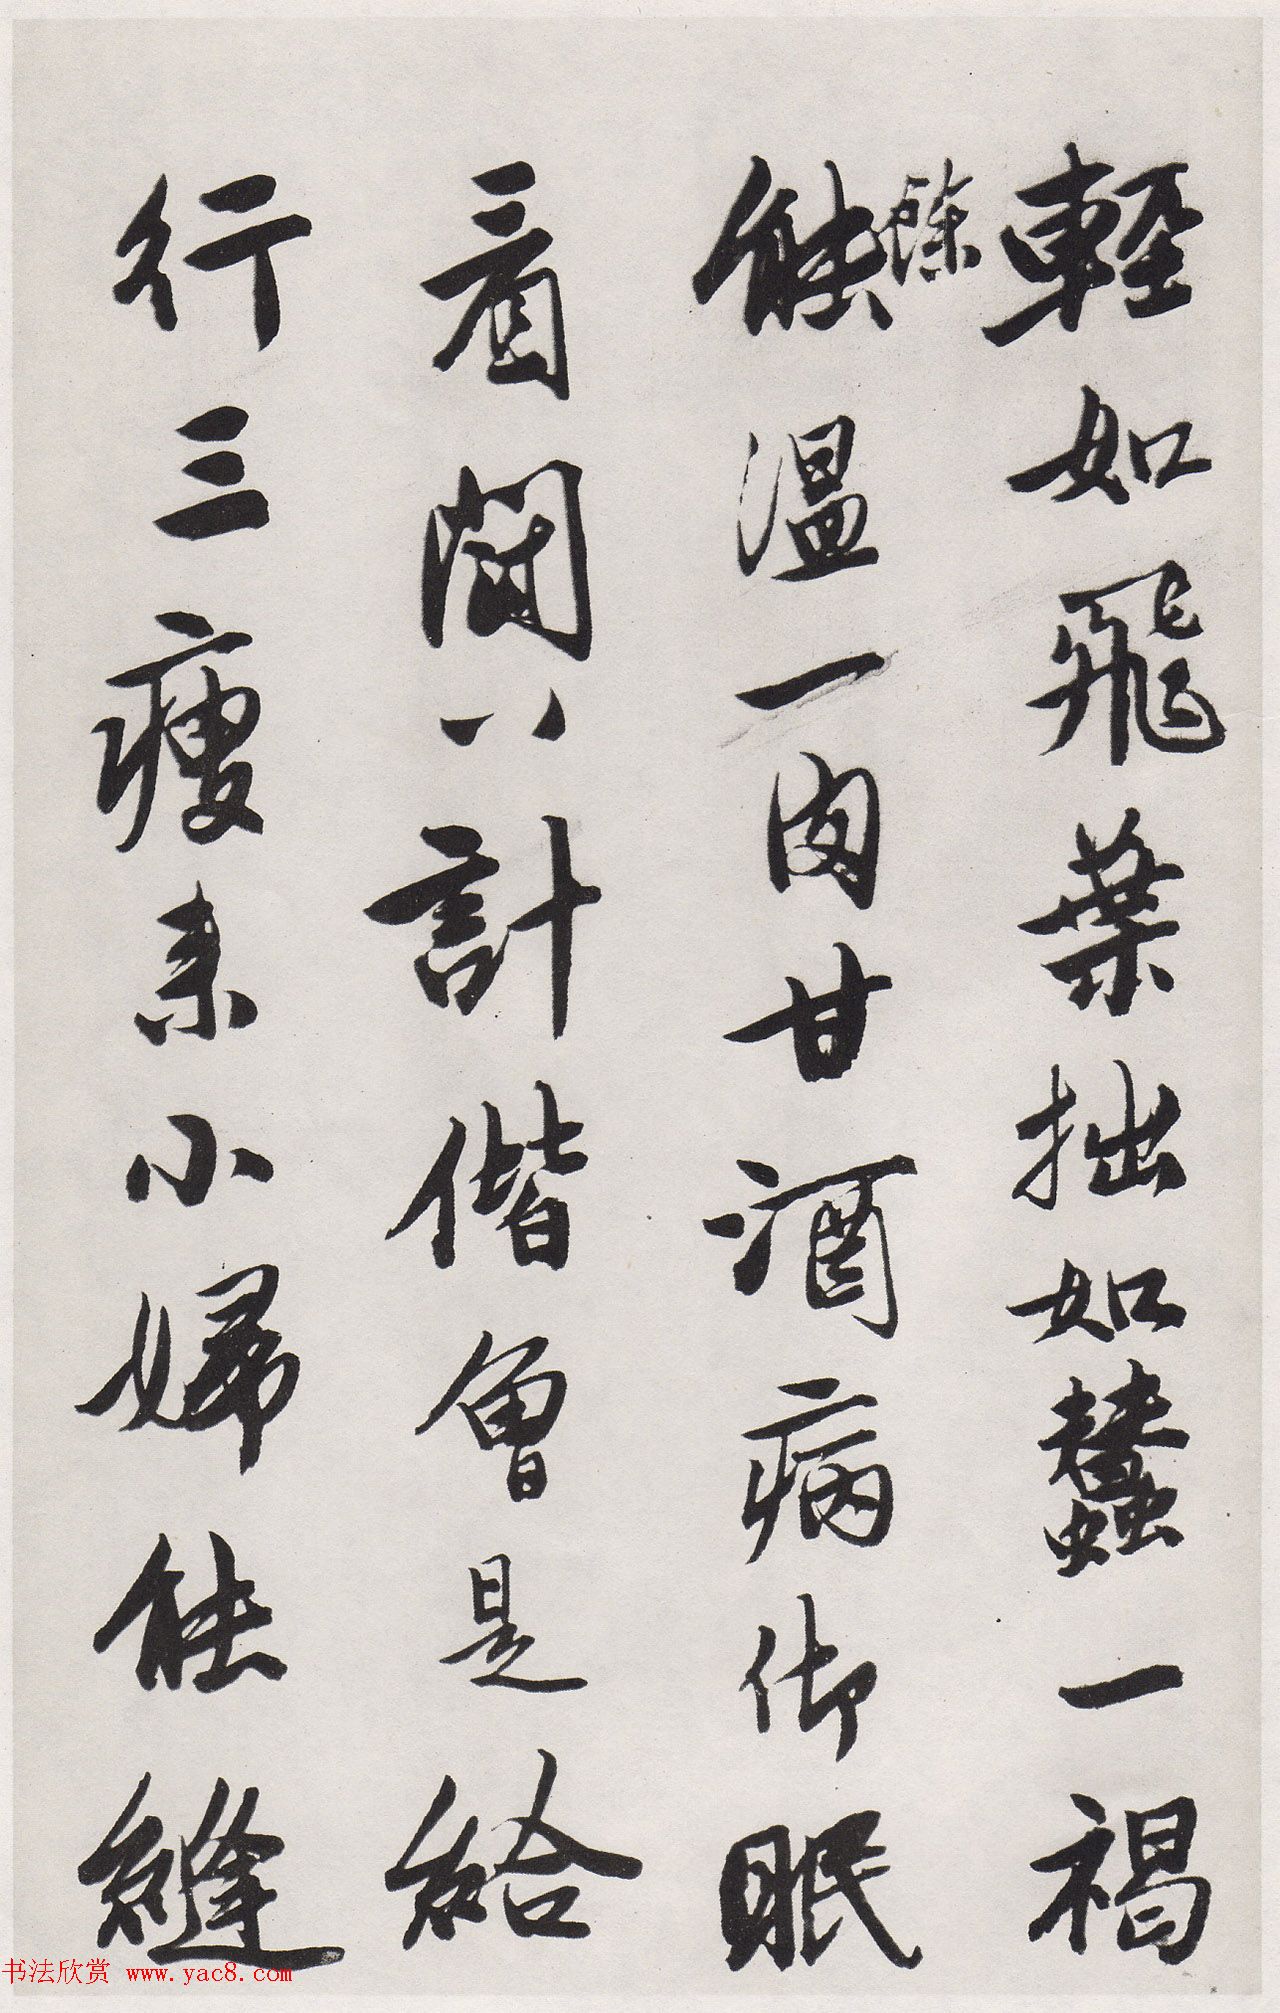 輕如飛葉拙如蠶一褐
餘
能溫一肉甘酒病御眠
看閑八計偕曾是給
行三瘦來小婦能縫
书法欣赏 www.yac8.com